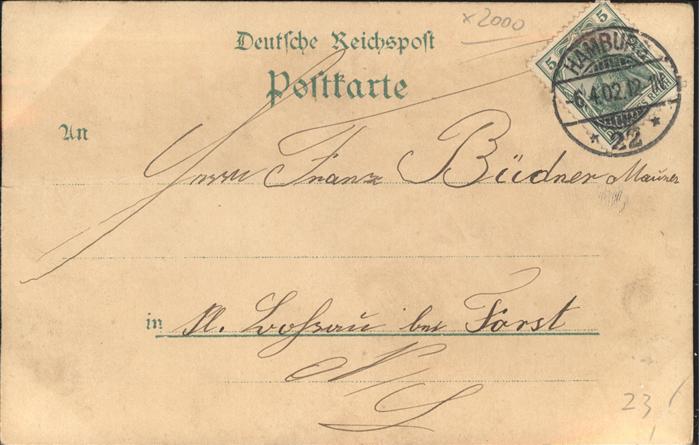 x2000
Deutsche Reichspost
Postkarte
5 5
HAMBURG
-6.4.02.12-1N.
* 22 *
An
Herrn Franz Büdner Maurer
in Kl. Lohsau bei Forst
N/L
23